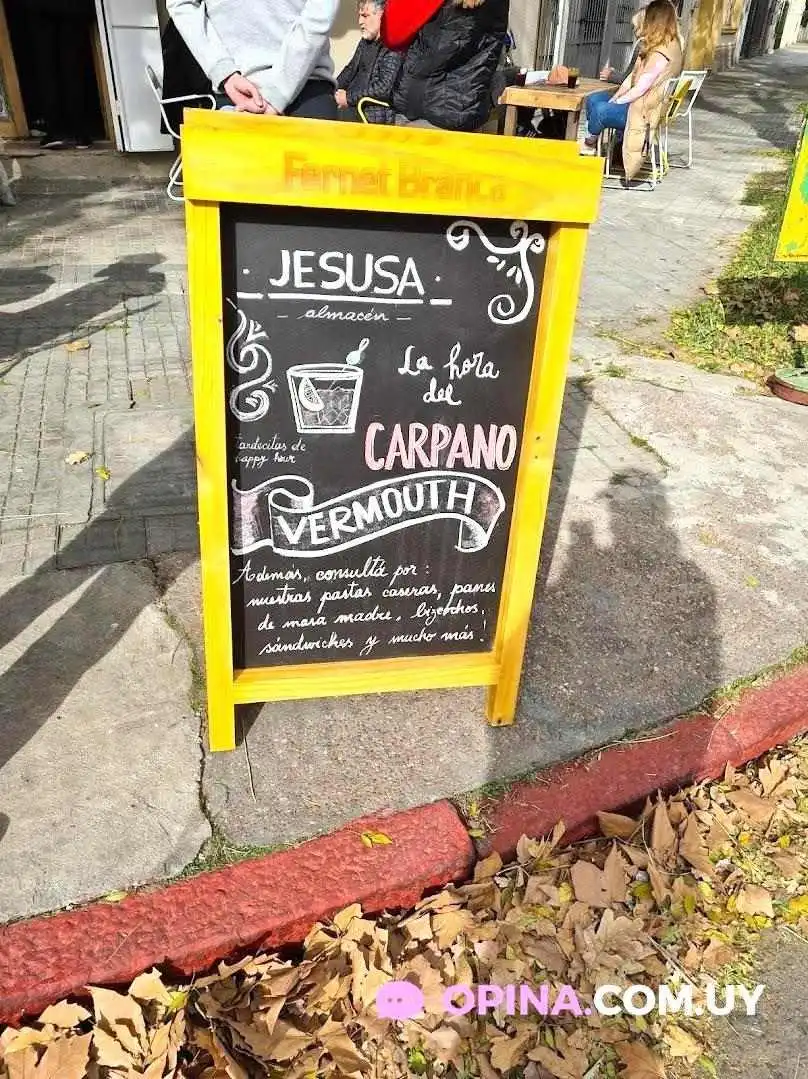 Fernet Branca
· JESUSA ·
– almacén –
La hora
del
CARPANO
tardecitas de
happy hour
VERMOUTH
Además, consultá por:
nuestras pastas caseras, panes
de masa madre, bizcochos,
sándwiches y mucho más!
OPINA.COM.UY